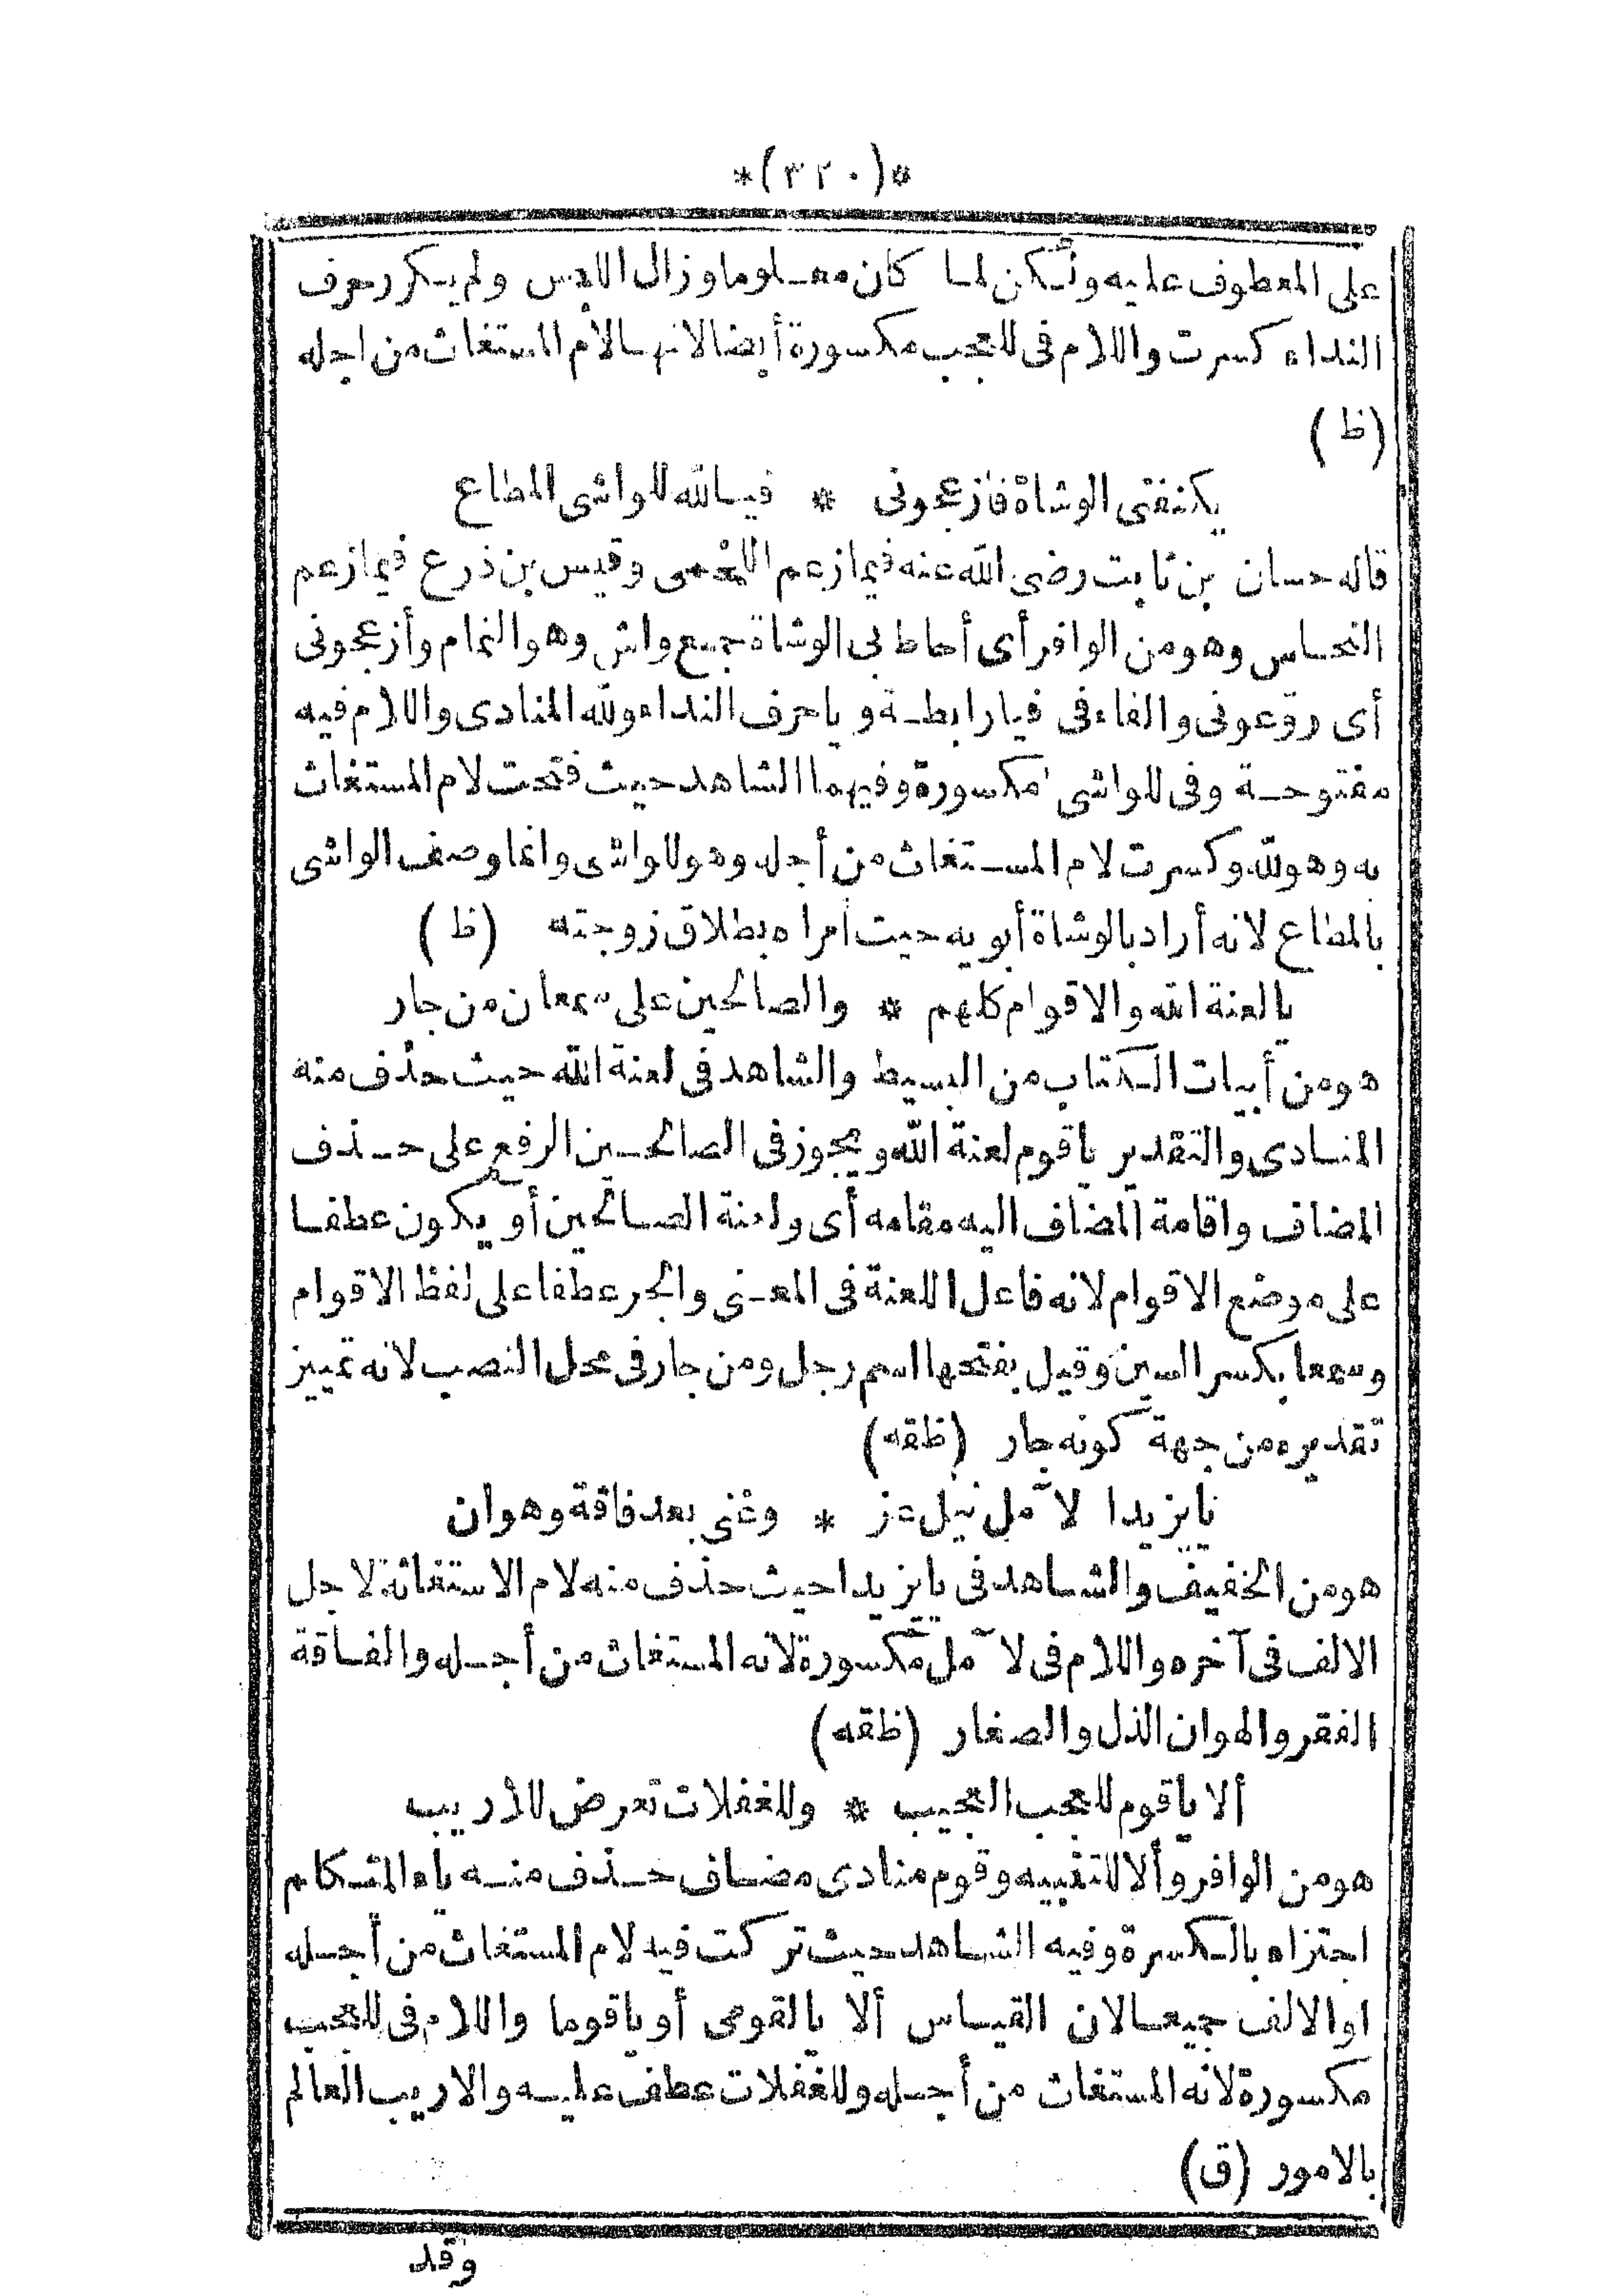 *(٣٢٠)*
على المعطوف عليه ولكن لما كان معلوما وزال اللبس ولم يكرر حرف
النداء كسرت واللام فى للعجب مكسورة أيضا لانها لام المستغاث من اجله
(ظ)
يكنفنى الوشاة فازعجونى * فيالله للواشى المطاع
قاله حسان بن ثابت رضى الله عنه فيما زعم اللخمى وقيس بن ذرع فيما زعم
النحاس وهو من الوافر أى أحاط بى الوشاة جمع واش وهو النمام وأزعجونى
أى روّعونى والفاء فى فيا رابطة ويا حرف النداء ولله المنادى واللام فيه
مفتوحة وفى للواشى مكسورة وفيهما الشاهد حيث فتحت لام المستغاث
به وهو لله وكسرت لام المستغاث من أجله وهو للواشى وانما وصف الواشى
بالمطاع لانه أراد بالوشاة أبويه حيث امراه بطلاق زوجته (ظ)
يا لعنة الله والاقوام كلهم * والصالحين على سمعان من جار
هو من أبيات الكتاب من البسيط والشاهد فى لعنة الله حيث حذف منه
المنادى والتقدير ياقوم لعنة الله ويجوز فى الصالحين الرفع على حذف
المضاف واقامة المضاف اليه مقامه أى ولعنة الصالحين أو يكون عطفا
على موضع الاقوام لانه فاعل اللعنة فى المعنى والجر عطفا على لفظ الاقوام
وسمعا بكسر السين وقيل بفتحها اسم رجل ومن جار فى محل النصب لانه تمييز
تقديره من جهة كونه جار (ظقه)
يايزيدا لآمل نيل عز * وغنى بعد فاقة وهوان
هو من الخفيف والشاهد فى يايزيدا حيث حذف منه لام الاستغاثة لاجل
الالف فى آخره واللام فى لآمل مكسورة لانه المستغاث من أجله والفاقة
الفقر والهوان الذل والصغار (ظقه)
ألا ياقوم للعجب العجيب * وللغفلات تعرض للاريب
هو من الوافر وألا للتنبيه وقوم منادى مضاف حذف منه ياء المتكلم
اجتزاء بالكسرة وفيه الشاهد حيث تركت فيه لام المستغاث من أجله
اوالالف جميعا لان القياس ألا يالقومى أو ياقوما واللام فى للعجب
مكسورة لانه المستغاث من أجله وللغفلات عطف عليه والاريب العالم
بالامور (ق)
وقد